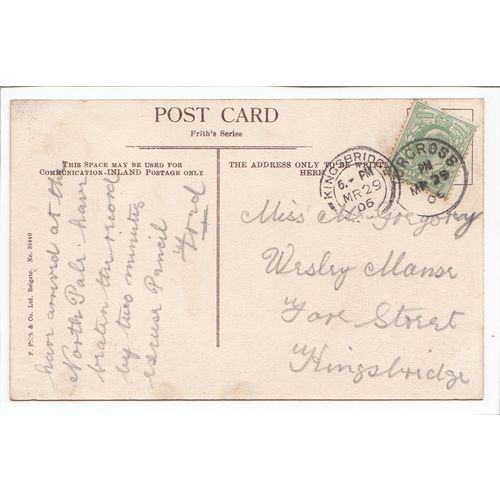 POST CARD
Frith's Series
THIS SPACE MAY BE USED FOR
COMMUNICATION-INLAND POSTAGE ONLY
THE ADDRESS ONLY TO BE WRITTEN
HERE
have arrived at the
North Pole. have
beaten the record
by two minutes
excuse Pencil
Ford
Miss M. Gregory
Wesley Manse
Fore Street
Kingsbridge
KINGSBRIDGE
6. PM
MR 29
06
RCROSS
PM
MR 29
0
F. Frith & Co. Ltd. Reigate. No. 38440